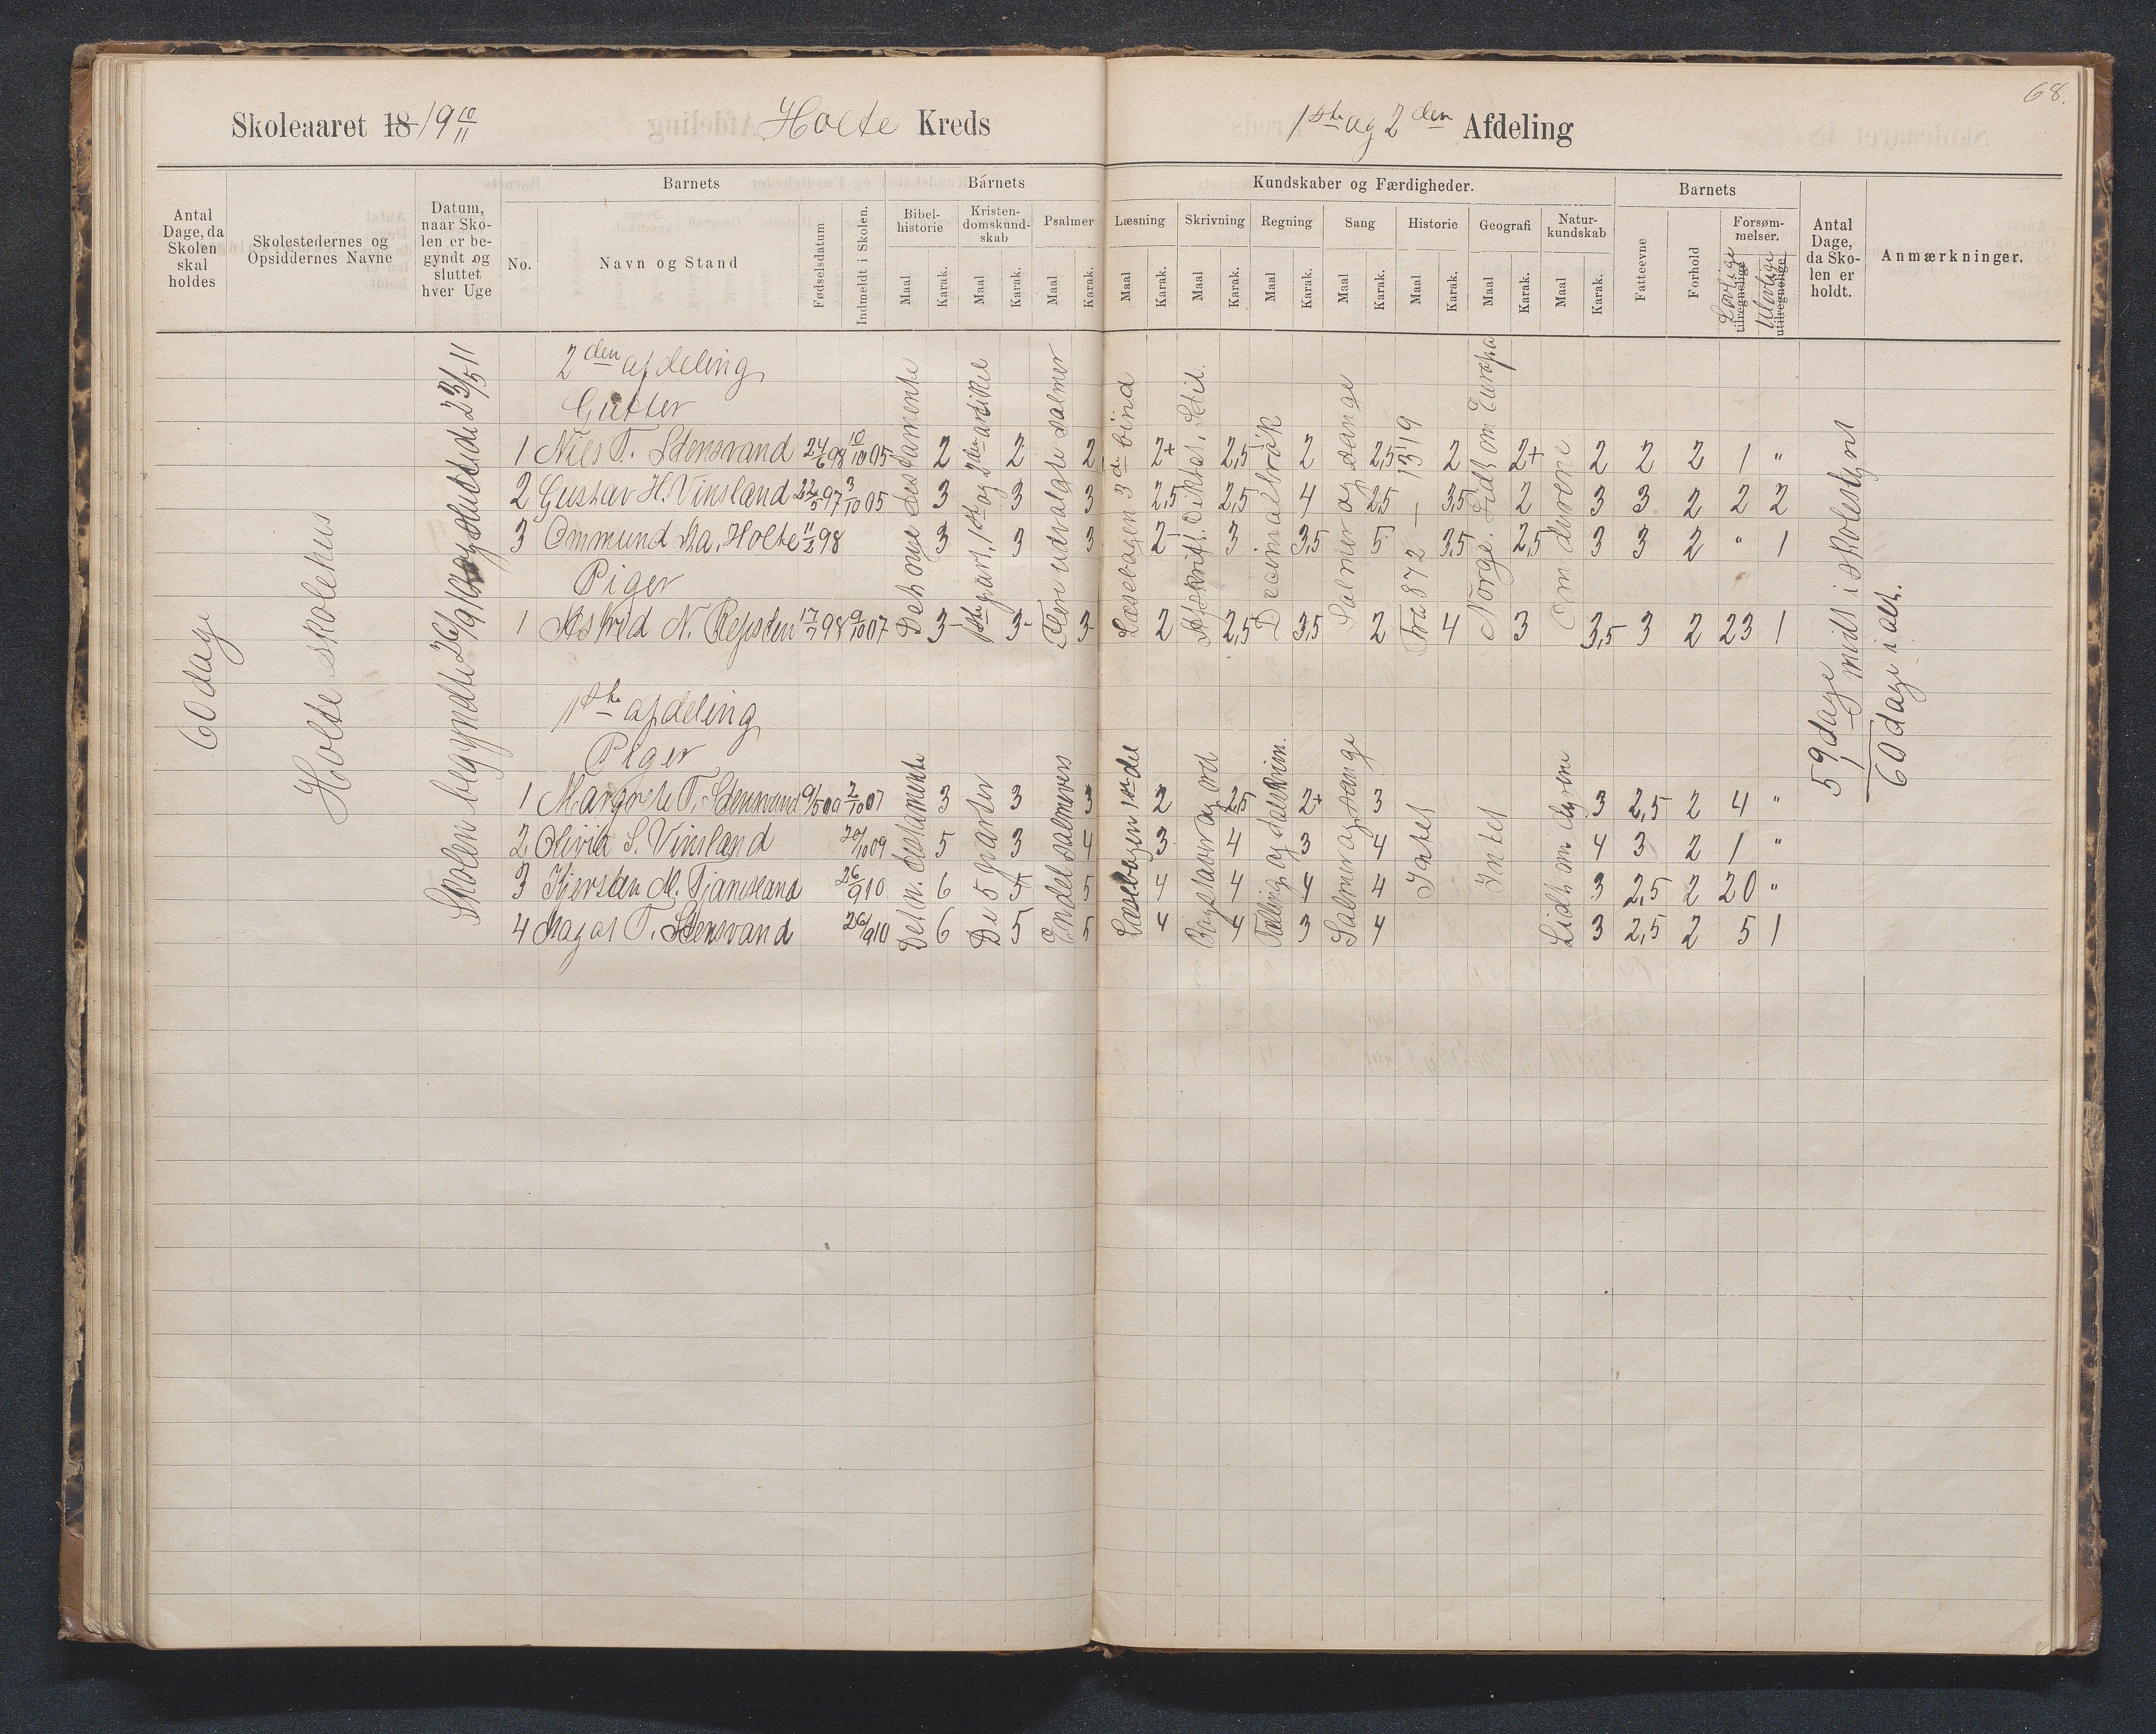 68.
Skoleaaret 18 19 10/11 Holte Kreds 1ste og 2den Afdeling
Antal Dage, da Skolen skal holdes
Skolestedernes og Opsiddernes Navne
Datum, naar Skolen er begyndt og sluttet hver Uge
Barnets
No.
Navn og Stand
Fødselsdatum
Indmeldt i Skolen.
Barnets
Kundskaber og Færdigheder.
Bibelhistorie Maal Karak.
Kristendomskundskab Maal Karak.
Psalmer Maal Karak.
Læsning Maal Karak.
Skrivning Maal Karak.
Regning Maal Karak.
Sang Maal Karak.
Historie Maal Karak.
Geografi Maal Karak.
Naturkundskab Maal Karak.
Barnets
Fatteevne
Forhold
Forsømmelser.
Lovlige tilregnelige
Ulovlige utilregnelige
Antal Dage, da Skolen er holdt.
Anmærkninger.
60 dage
Holte skolehus
Skolen begyndte 26/9 10 og sluttede 23/5 11
2den afdeling
Gutter
1 Niels T. Stensvand 24/6 98 10/10 05 2 2 2 2+ 2,5 2 2,5 2 2+ 2 2 2 1 "
2 Gustav H. Vinsland 22/5 97 3/10 05 3 3 3 2,5 2,5 4 2,5 3,5 2 3 3 2 2 2
3 Ommund Ka. Holte 11/2 98 3 3 3 2 3 3,5 5 3,5 2,5 3 3 2 " 1
Piger
1 Astrid N. Repsten 17/7 98 9/10 07 3 3 3 2 2,5 3,5 2 4 3 3,5 3 2 23 1
Det nye testamente
1ste part, 1ste og 2den artikel
Flere udvalgte salmer
Læsebogen 3die bind
Afskrift. Diktat. Stil.
Decimalbrøk
Salmer og sange
Fra 872 – 1319
Norge. Lidt om Europa
Om dyrene
59 dage
1 midt i skolestyret
60 dage i alt.
1ste afdeling
Piger
1 Margrete T. Stensvand 9/5 00 2/10 07 3 3 3 2 2,5 2+ 3 3 2,5 2 4 "
2 Olivia S. Vinsland 20/10 09 5 3 4 3 4 3 4 4 3 2 1 "
3 Kjersten M. Tjamsland 26/9 10 6 5 5 4 4 4 4 3 2,5 2 20 "
4 Magat T. Stensvand 26/9 10 6 5 5 4 4 3 4 3 2,5 2 5 1
Det n. testamente
De 5 parter
Endel salmevers
Læsebogen 1ste del
Bogstaver og ord
Tælling og talskrivn.
Salmer og sange
Intet
Intet
Lidt om dyrene